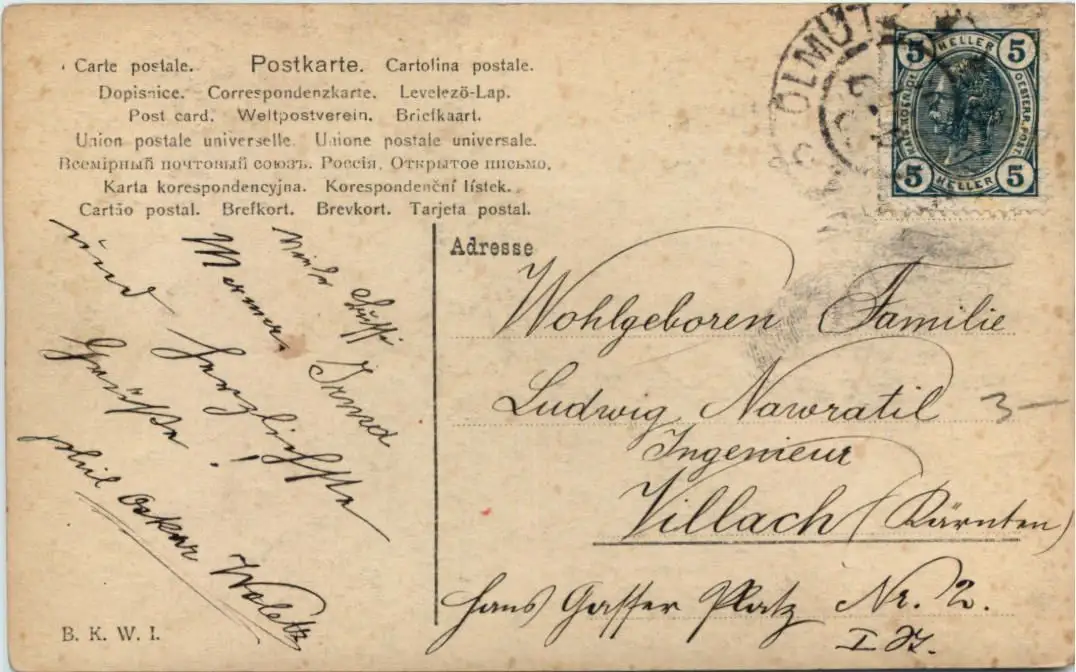 Carte postale. Postkarte. Cartolina postale.
Dopisnice. Correspondenzkarte. Levelezö-Lap.
Post card. Weltpostverein. Briefkaart.
Union postale universelle. Unione postale universale.
Всемірный почтовый союзъ. Россія, Открытое письмо.
Karta korespondencyjna. Korespondenční lístek.
Cartão postal. Brefkort. Brevkort. Tarjeta postal.
OLMÜTZ
5 HELLER 5
KAIS. KÖNIGL. OESTERR. POST
5 HELLER 5
Adresse
Wohlgeboren Familie
Ludwig Nawratil
Ingenieur
Villach (Kärnten)
Hans Gasser Platz Nr. 2.
I
3—
Irma
und herzlichste
Grüsse!
Oskar
B. K. W. I.